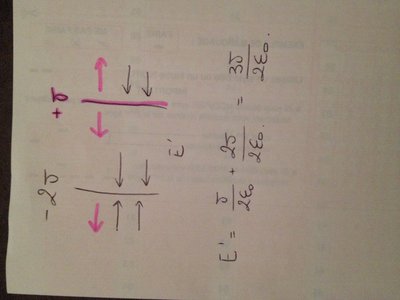 -2σ +σ
E'
E' = σ/2ε₀ + 2σ/2ε₀ = 3σ/2ε₀.